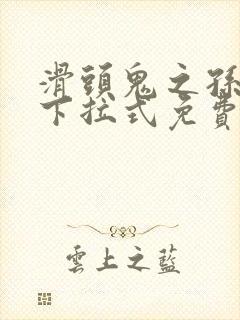 滑頭鬼之孫
下拉式免費
雲上之藍